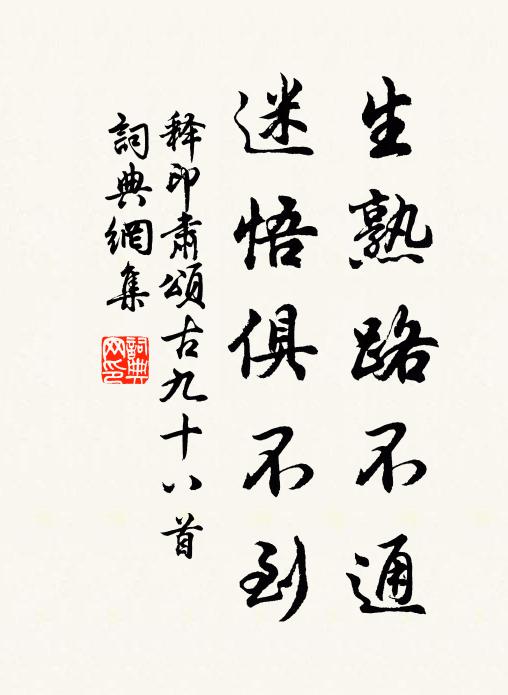 生熟路不通
迷悟俱不到
释印肃頌古九十八首
詞典網集
詞典
网印